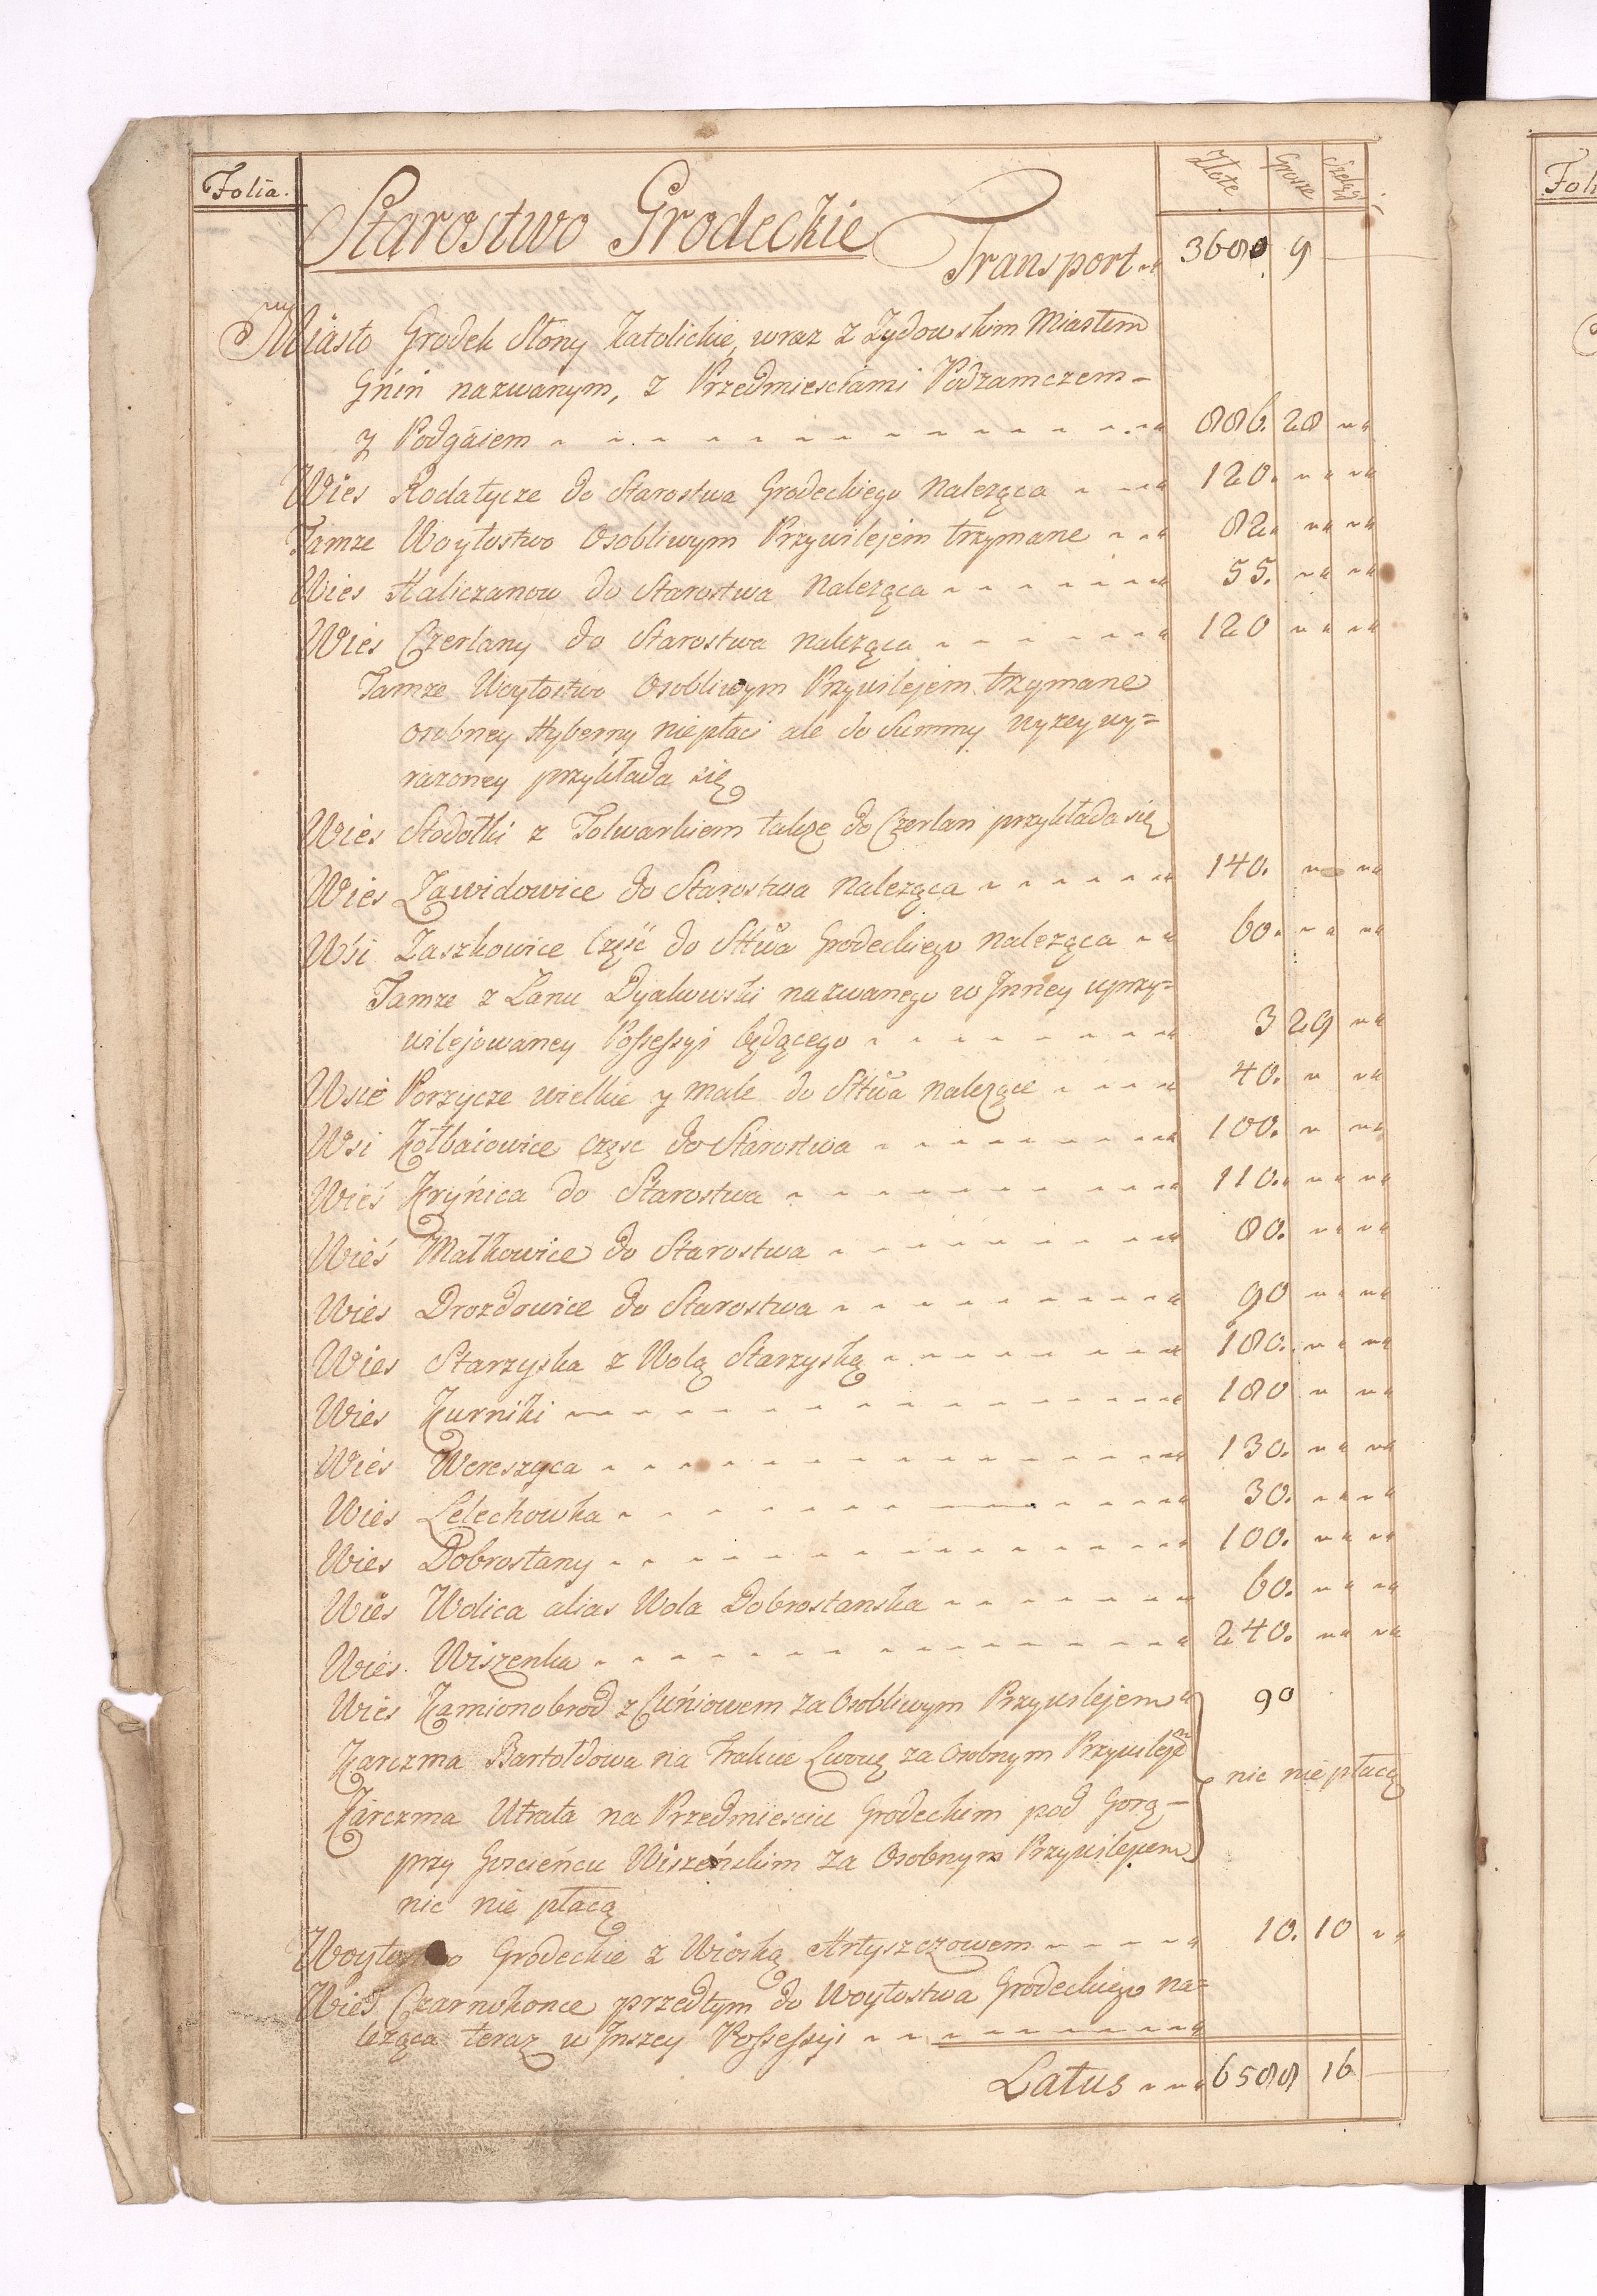 Folia.
Złote Grosze Szeląg
Starostwo Grodeckie
Transport 3680. 9
Miasto Grodek Słony Katolickie, wraz z Zydowskim Miastem
Gnin nazwanym, z Przedmiesciami Podzamczem
y Podgaiem 886. 28
Wies Rodatycze do Starostwa Grodeckiego Naleząca 120.
Tamze Woytostwo Osobliwym Przywilejem trzymane 82.
Wies Haliczanow do Starostwa Naleząca 55.
Wies Czerlany do Starostwa naleząca 120
Tamze Woytostwo Osobliwym Przywilejem trzymane
osobney Hyberny nie płaci ale do Summy wyzey wy=
razoney przykłada się
Wies Stodołki z Folwarkiem takze do Czerlan przykłada się
Wies Zawidowice do Starostwa Naleząca 140.
Wsi Zaszkowice Część do Sttwa Grodeckiego Naleząca 60.
Tamze z Łanu Dyakowski nazwanego w Inney uprzy=
wilejowaney Possessyi będącego 3 29
Wsie Porzycze wielkie y małe do Sttwa Nalezące 40.
Wsi Kołbaiowice częsc do Starostwa 100.
Wieś Kryńica do Starostwa 110.
Wieś Małkowice do Starostwa 80.
Wies Drozdowice do Starostwa 90
Wies Starzyska z Wolą Starzyską 180.
Wies Kurniki 180
Wies Wereszyca 130.
Wies Lelechowka 30.
Wies Dobrostany 100.
Wies Wolica alias Wola Dobrostanska 60.
Wies Wiszenka 240.
Wies Kamionobrod z Cuńiowem za Osobliwym Przywilejem 90
Karczma Bartołdowa na Trakcie Lwową za Osobnym Przywileję
nic nie płacą
Karczma Utrata na Przedmiesciu Grodeckim pod Gorą
przy Goscieńcu Wiszeńskim za Osobnym Przywilejem
nic nie płacą
Woytostwo Grodeckie z Wioską Artyszczowem 10. 10
Wies Czarnokonce przedtym do Woytostwa Grodeckiego na=
leząca teraz w Inszey Possessyi
Latus 6588 16